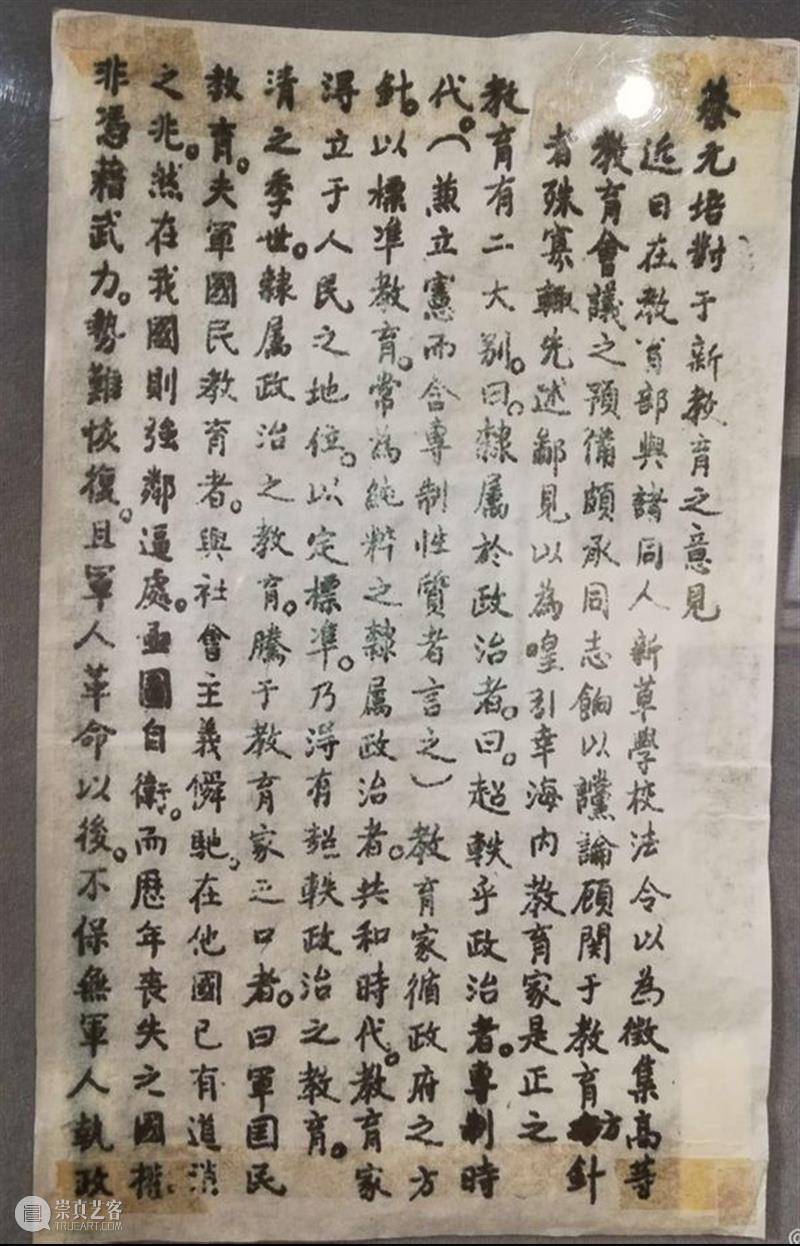 蔡元培對于新教育之意見
近日在教育部與諸同人新草學校法令以為徵集高等
教育會議之預備頗承同志餉以讜論顧関于教育方針
者殊寡輒先述鄙見以為喤引幸海內教育家是正之
教育有二大别。曰。隸屬於政治者。曰。超軼乎政治者。專制時
代。(兼立憲而含專制性質者言之)教育家循政府之方
針。以標準教育。常為純粹之隸属政治者。共和時代。教育家
淂立于人民之地位。以定標準。乃淂有超軼政治之教育。
清之季世。隸属政治之教育。騰于教育家之口者。曰軍囯民
教育。夫軍國民教育者。與社會主義僢馳。在他國已有道消
之兆。然在我國則強鄰逼處。亟圖自衛。而歷年喪失之國權。
非憑藉武力。勢難恢復。且軍人革命以後。不保無軍人執政
崇真艺客
TRUEART.COM